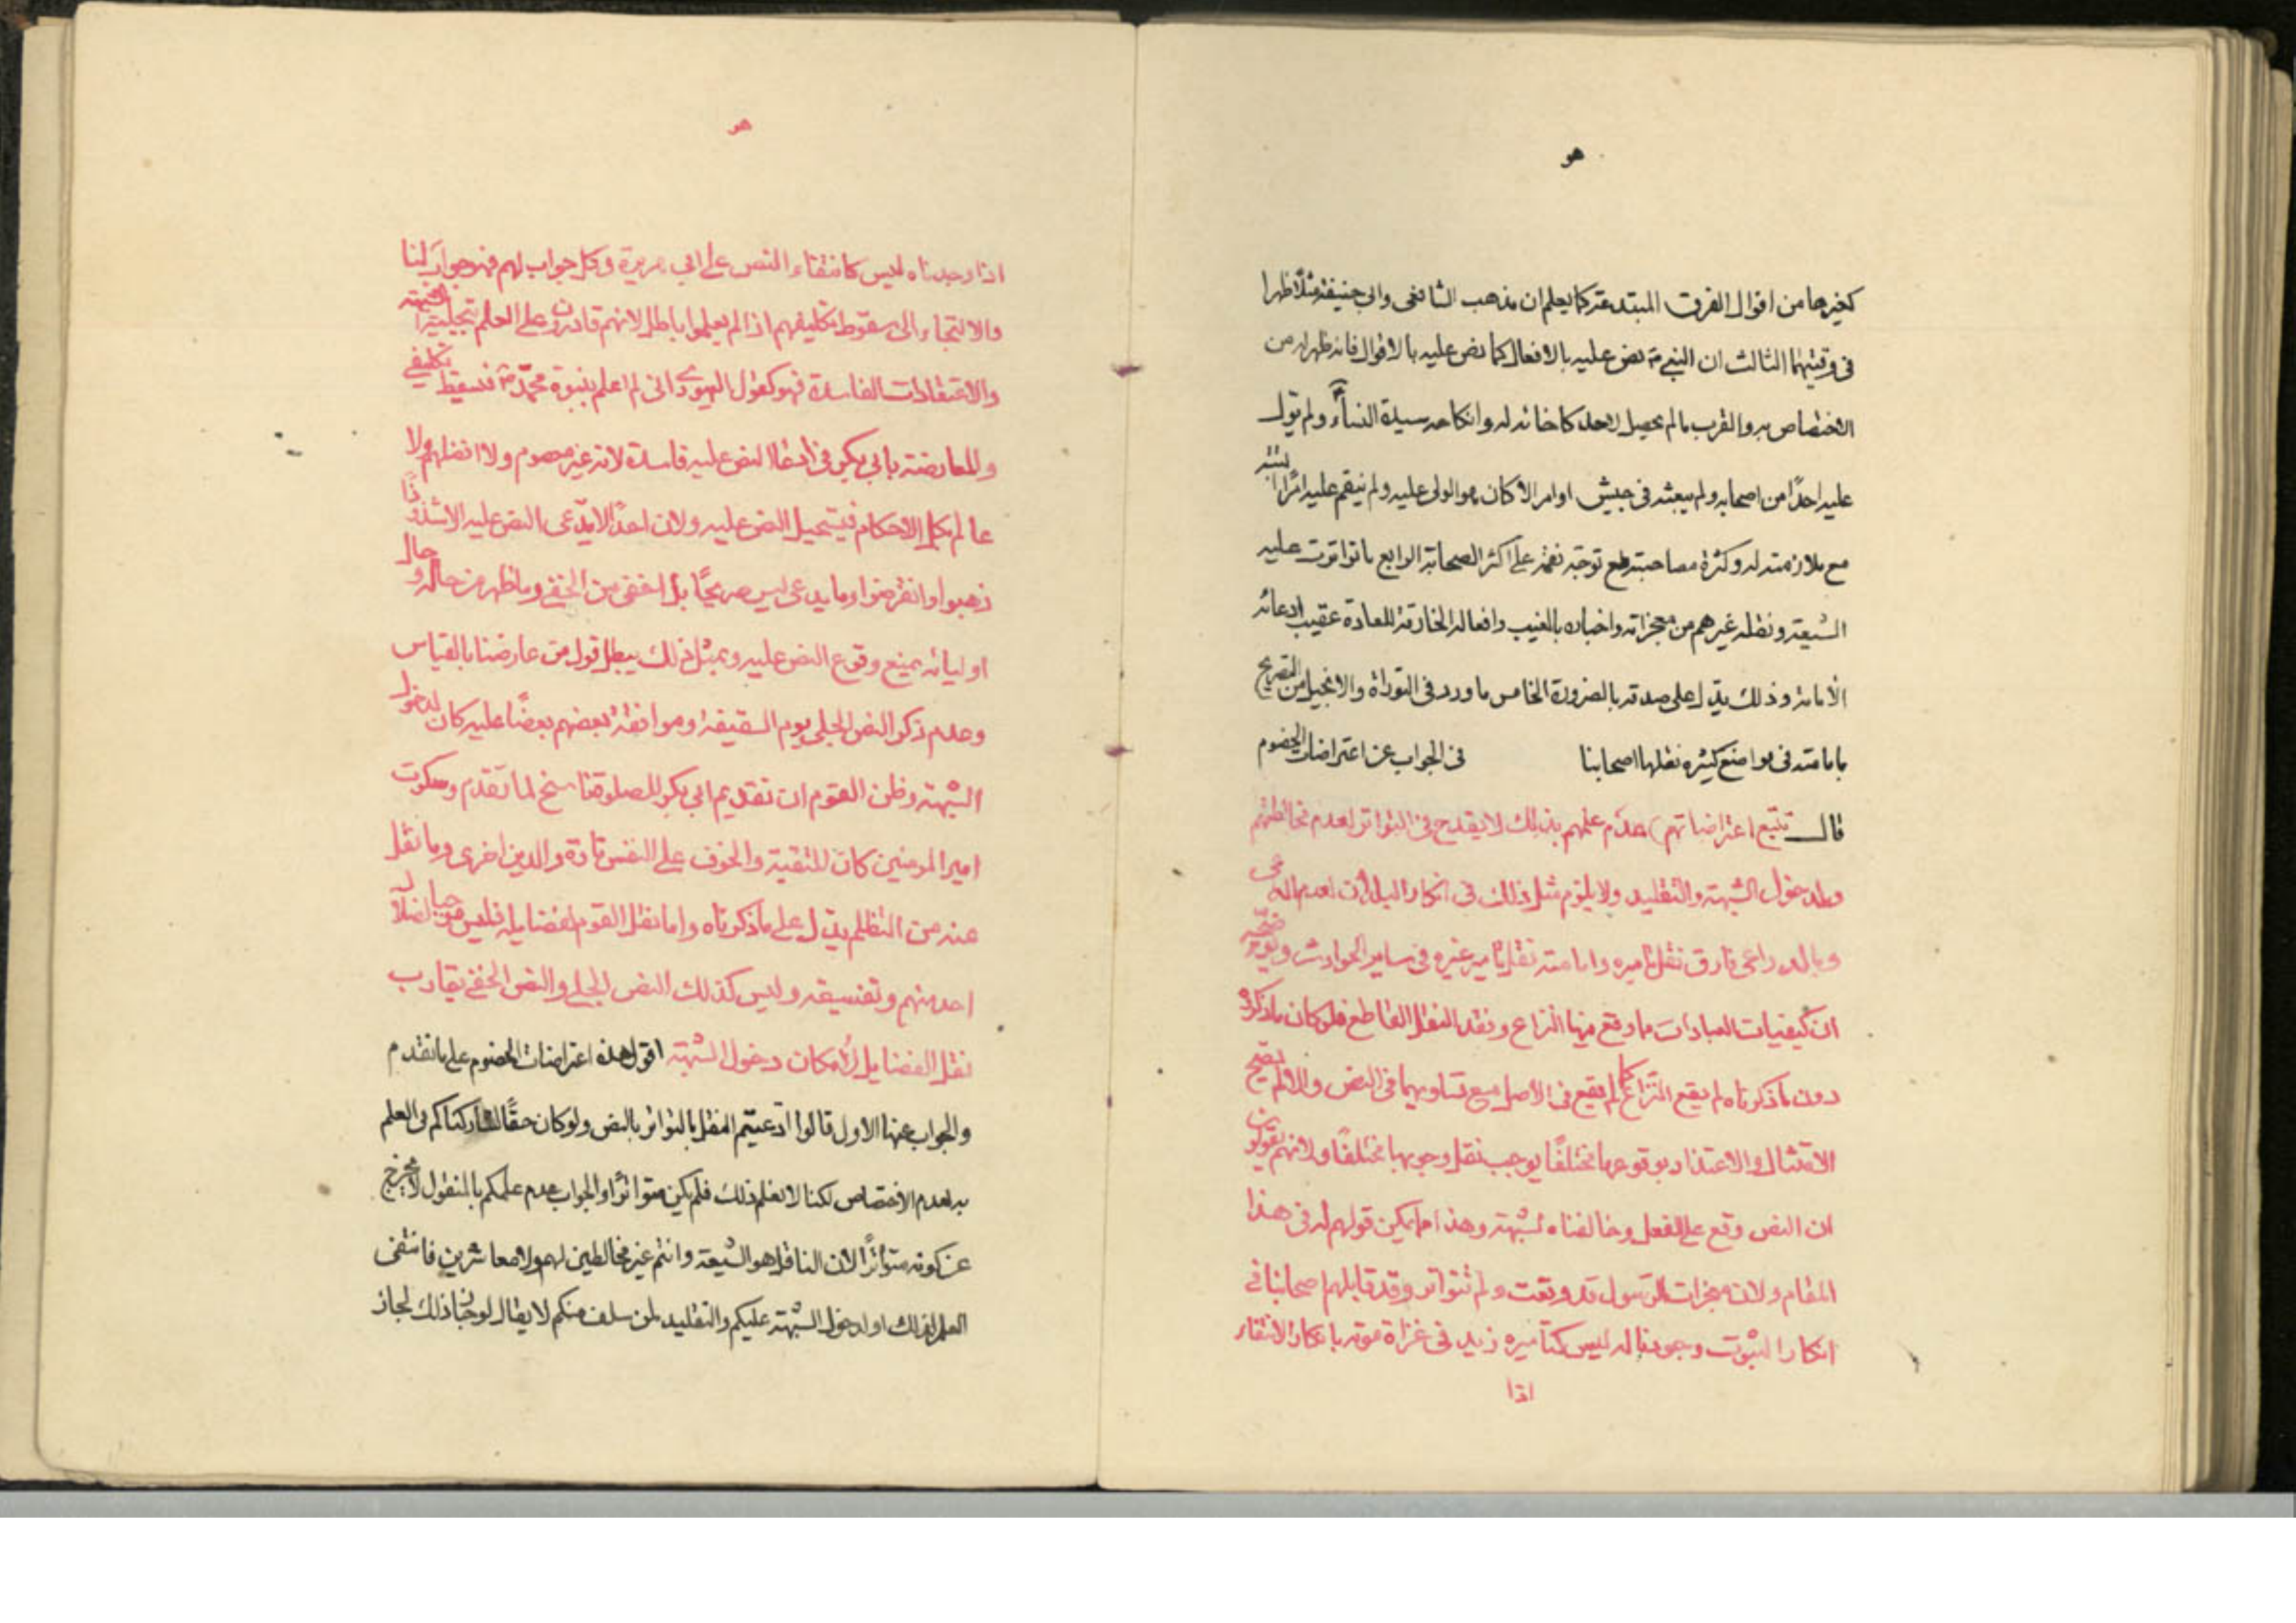 هو
كغيرها من اقوال الفرق المبتدعة كما يعلم ان مذهب الشافعى وابى حنيفة مثلاً ظهرا
فى وقتيهما الثالث ان النبي ص نص عليه بالافعال كما نص عليه بالاقوال فانه ظهر له من
الاختصاص به والقرب ما لم يحصل لاحد كاخائه له وانكاحه سيدة النساء ولم يول
عليه احدًا من اصحابه ولم يبعثه فى جيش او امر الا كان هو الوالى عليه ولم ينقم عليه امرًا
مع ملازمته له وكثرة مصاحبته مع توجه نقمه على اكثر الصحابة الرابع ما تواترت عليه
الشيعة ونقله غيرهم من معجزاته واخباره بالغيب وافعاله الخارقة للعادة عقيب ادعائه
الامامة وذلك يدل على صدقه بالضرورة الخامس ما ورد فى التوراة والانجيل من التصريح
بامامته فى مواضع كثيرة نقلها اصحابنا فى الجواب عن اعتراضات الخصوم
قال تتبع اعتراضاتهم عدم علمهم بذلك لا يقدح فى التواتر لعدم مخالطتهم
ولدخول الشبهة والتقليد ولا يلزم مثل ذلك فى انكار البلدان لعدم
وبالدواعى فارق نقل تاميره وامامته نقل تامير غيره فى ساير الحوادث
ان كيفيات العبادات ما وقع فيها النزاع وفقد النقل القاطع فلو كان ما ذكروه
دون ما ذكرناه لم يقع النزاع كما لم يقع فى الاصل مع تساويهما فى النص
الامتثال والاعتذار بوقوعها مختلفًا يوجب نقل وجوبها مختلفًا ولانهم يقولون
ان النص وقع على الفعل وخالفناه لشبهة وهذا لا يمكن قولهم له فى هذا
المقام ولان معجزات الرسول قد وقعت ولم تتواتر وقد قابلهم اصحابنا فى
انكار الثبوت وجوبنا له ليس كتاميره زيد فى غزاة موته بانكار الانتفاء
اذا
هو
اذا وجدناه ليس كانتفاء النص على ابي هريرة وكل جواب لهم فهو جواب لنا
والالتجاء الى سقوط تكليفهم اذا لم يعلموا باطل لانهم قادرون على العلم
والاعتقادات الفاسدة فهو كقول اليهودى انى لم اعلم بنبوة محمّد ص فسقط تكليفي
والمعارضة بابي بكر فى النص عليه فاسدة لانه غير معصوم ولا افضلهم ولا
عالم بكل الاحكام فيستحيل النص عليه ولان احدًا لا يدّعى النص عليه الا شذوذًا
ذهبوا وانقرضوا وما يدعى ليس صريحًا بل اخفى من الخفى وما ظهر من حاله وحال
اوليائه يمنع وقوع النص عليه وبمثل ذلك يبطل قول من عارضنا بالقياس
وعدم ذكر النص الجلي يوم السقيفة وموافقة بعضهم بعضًا عليه كان لدخول
الشبهة وظن القوم ان تقديم ابي بكر للصلوة ناسخ لما تقدم وسكوت
امير المومنين كان للتقية والخوف على النفس تارة والدين اخرى وما نقل
عنه من التظلم يدل على ما ذكرناه واما نقل القوم لفضايله فليس
احد منهم وتفسيقه وليس كذلك النص الجلي والنص الخفي يقارب
نقل الفضايل لامكان دخول الشبهة اقول هذه اعتراضات الخصوم على ما تقدم
والجواب عنها الاول قالوا ادعيتم النقل بالتواتر بالنص ولو كان حقًا لشاركناكم فى العلم
به لعدم الاختصاص لكنا لا نعلم ذلك فلم يكن متواترًا والجواب عدم علمكم بالمنقول لا يخرج
عن كونه متواترًا لان الناقل هو الشيعة وانتم غير مخالطين لهم ولا معاشرين فانتفى
العلم لذلك او لدخول الشبهة عليكم والتقليد لمن سلف منكم لا يقال لو جاز ذلك لجاز